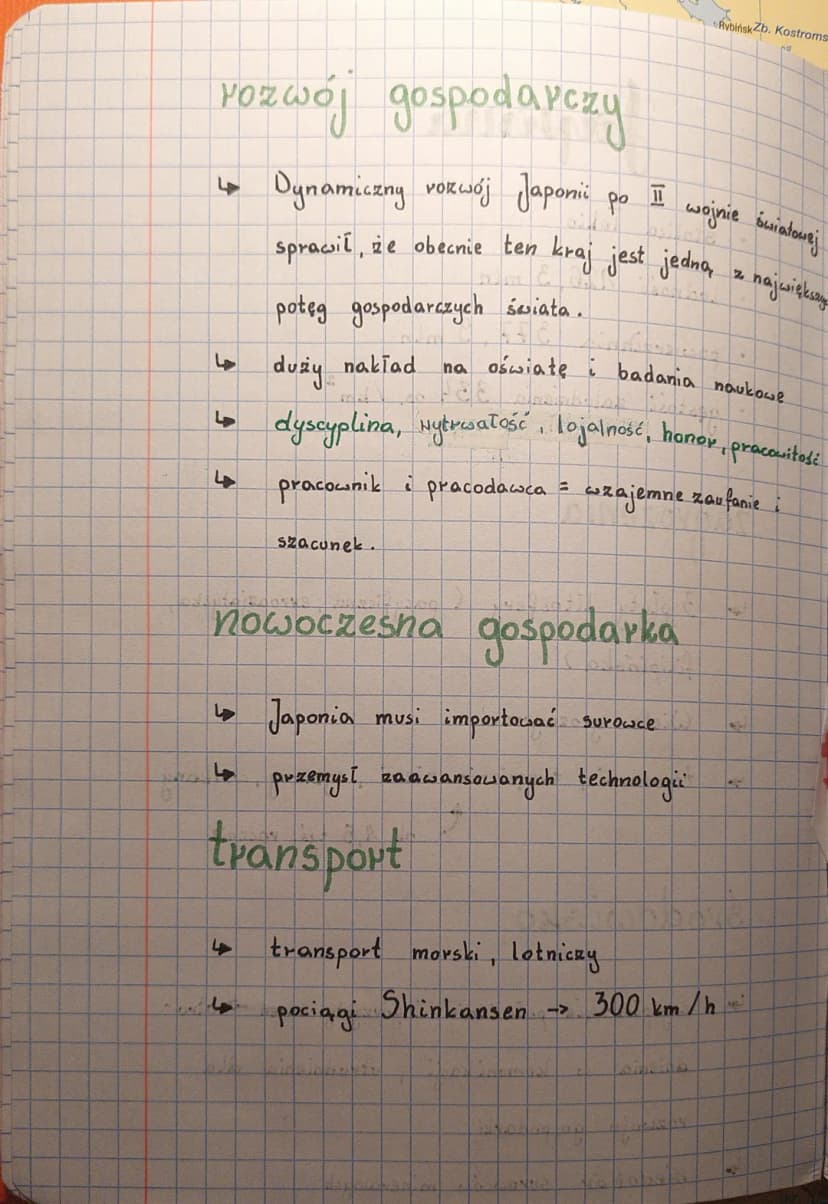 Rybińsk Zb. Kostroms
rozwój gospodarczy
↳ Dynamiczny rozwój Japonii po II wojnie światowej
sprawił, że obecnie ten kraj jest jedną z największych
potęg gospodarczych świata.
↳ duży nakład na oświatę i badania naukowe
↳ dyscyplina, wytrwałość, lojalność, honor, pracowitość
↳ pracownik i pracodawca = wzajemne zaufanie i
szacunek.
nowoczesna gospodarka
↳ Japonia musi importować surowce
↳ przemysł zaawansowanych technologii
transport
↳ transport morski, lotniczy
↳ pociągi Shinkansen -> 300 km/h